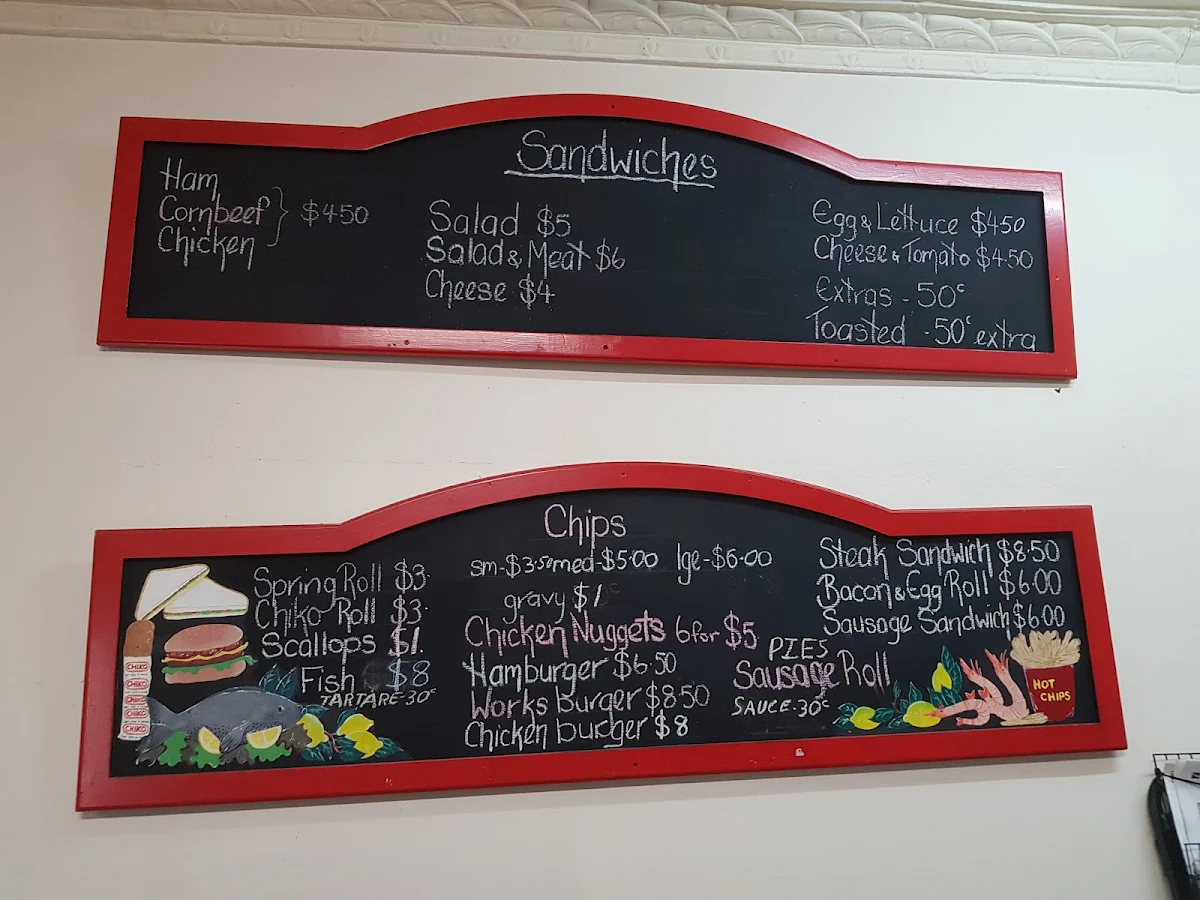 Sandwiches
Ham
Cornbeef } $4.50
Chicken
Salad $5
Salad & Meat $6
Cheese $4
Egg & Lettuce $4.50
Cheese & Tomato $4.50
Extras - 50c
Toasted - 50c extra
Chips
sm-$3.50 med-$5.00 lge-$6.00
gravy $1
Spring Roll $3
Chiko Roll $3
Scallops $1.
Fish $8
TARTARE-30c
Chicken Nuggets 6 for $5
Hamburger $6.50
Works burger $8.50
Chicken burger $8
Steak Sandwich $8.50
Bacon & Egg Roll $6.00
Sausage Sandwich $6.00
PIES
Sausage Roll
SAUCE-30c
CHIKO
CHIKO
CHIKO
CHIKO
CHIKO
HOT
CHIPS